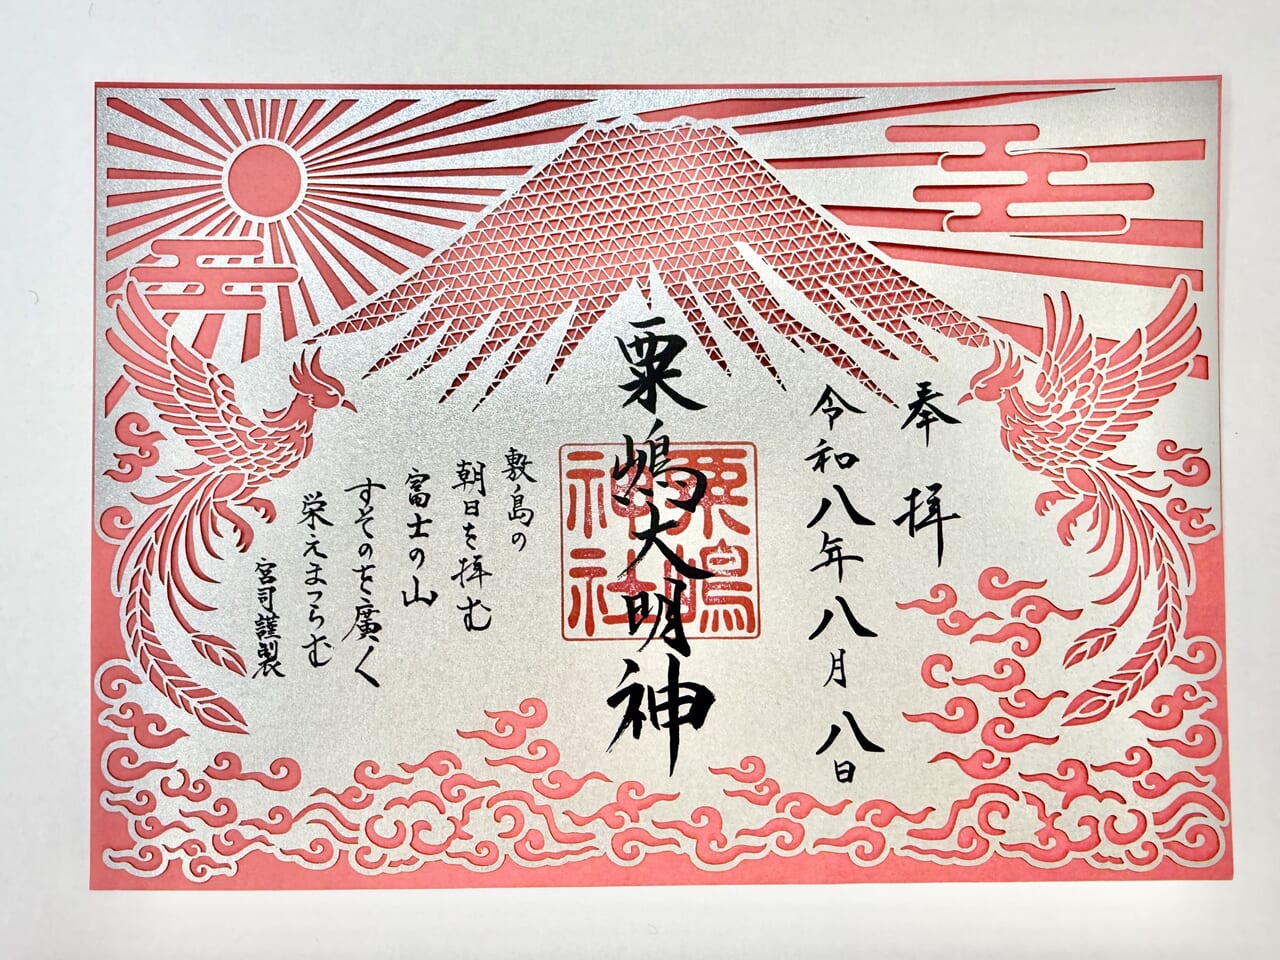 奉拝
令和八年八月八日
粟嶋大明神
粟嶋
神社
敷島の
朝日を拝む
富士の山
すそのを廣く
栄えまつらむ
宮司謹製